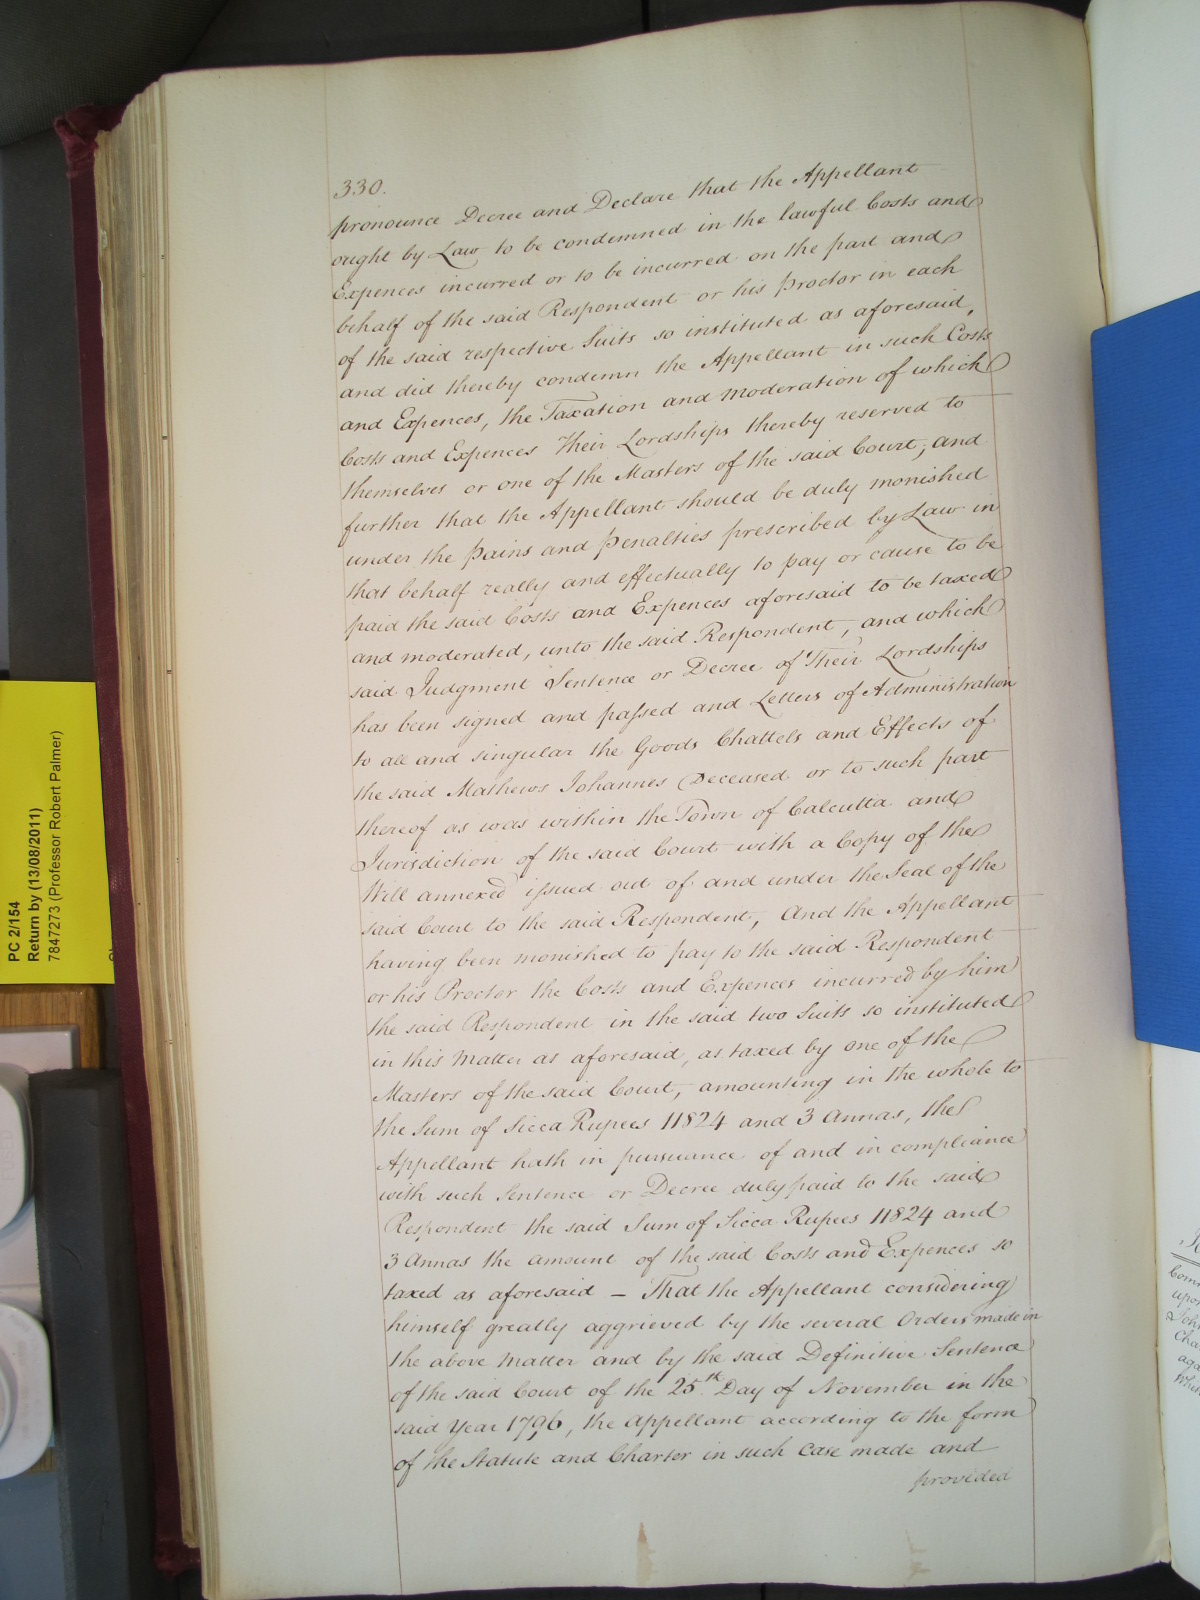 330.
pronounce Decree and Declare that the Appellant
ought by Law to be condemned in the lawful Costs and
Expences incurred or to be incurred on the part and
behalf of the said Respondent or his Proctor in each
of the said respective Suits so instituted as aforesaid,
and did thereby condemn the Appellant in such Costs
and Expences, the Taxation and Moderation of which
Costs and Expences Their Lordships thereby reserved to
themselves or one of the Masters of the said Court; and
further that the Appellant should be duly monished
under the Pains and Penalties prescribed by Law in
that behalf really and effectually to pay or cause to be
paid the said Costs and Expences aforesaid to be taxed
and moderated, unto the said Respondent, and which
said Judgment Sentence or Decree of Their Lordships
has been signed and passed and Letters of Administration
to all and singular the Goods Chattels and Effects of
the said Mathews Johannes Deceased or to such part
thereof as was within the Town of Calcutta and
Jurisdiction of the said Court with a Copy of the
Will annexed issued out of and under the Seal of the
said Court to the said Respondent, And the Appellant
having been monished to pay to the said Respondent
or his Proctor the Costs and Expences incurred by him
the said Respondent in the said two Suits so instituted
in this Matter as aforesaid, as taxed by one of the
Masters of the said Court, amounting in the whole to
the Sum of Sicca Rupees 11824 and 3 Annas, the
Appellant hath in pursuance of and in compliance
with such Sentence or Decree duly paid to the said
Respondent the said Sum of Sicca Rupees 11824 and
3 Annas the amount of the said Costs and Expences so
taxed as aforesaid – That the Appellant considering
himself greatly aggrieved by the several Orders made in
the above Matter and by the said Definitive Sentence
of the said Court of the 25th. Day of November in the
said Year 1796, the Appellant according to the form
of the Statute and Charter in such Case made and
provided
PC 2/154
Return by (13/08/2011)
7847273 (Professor Robert Palmer)